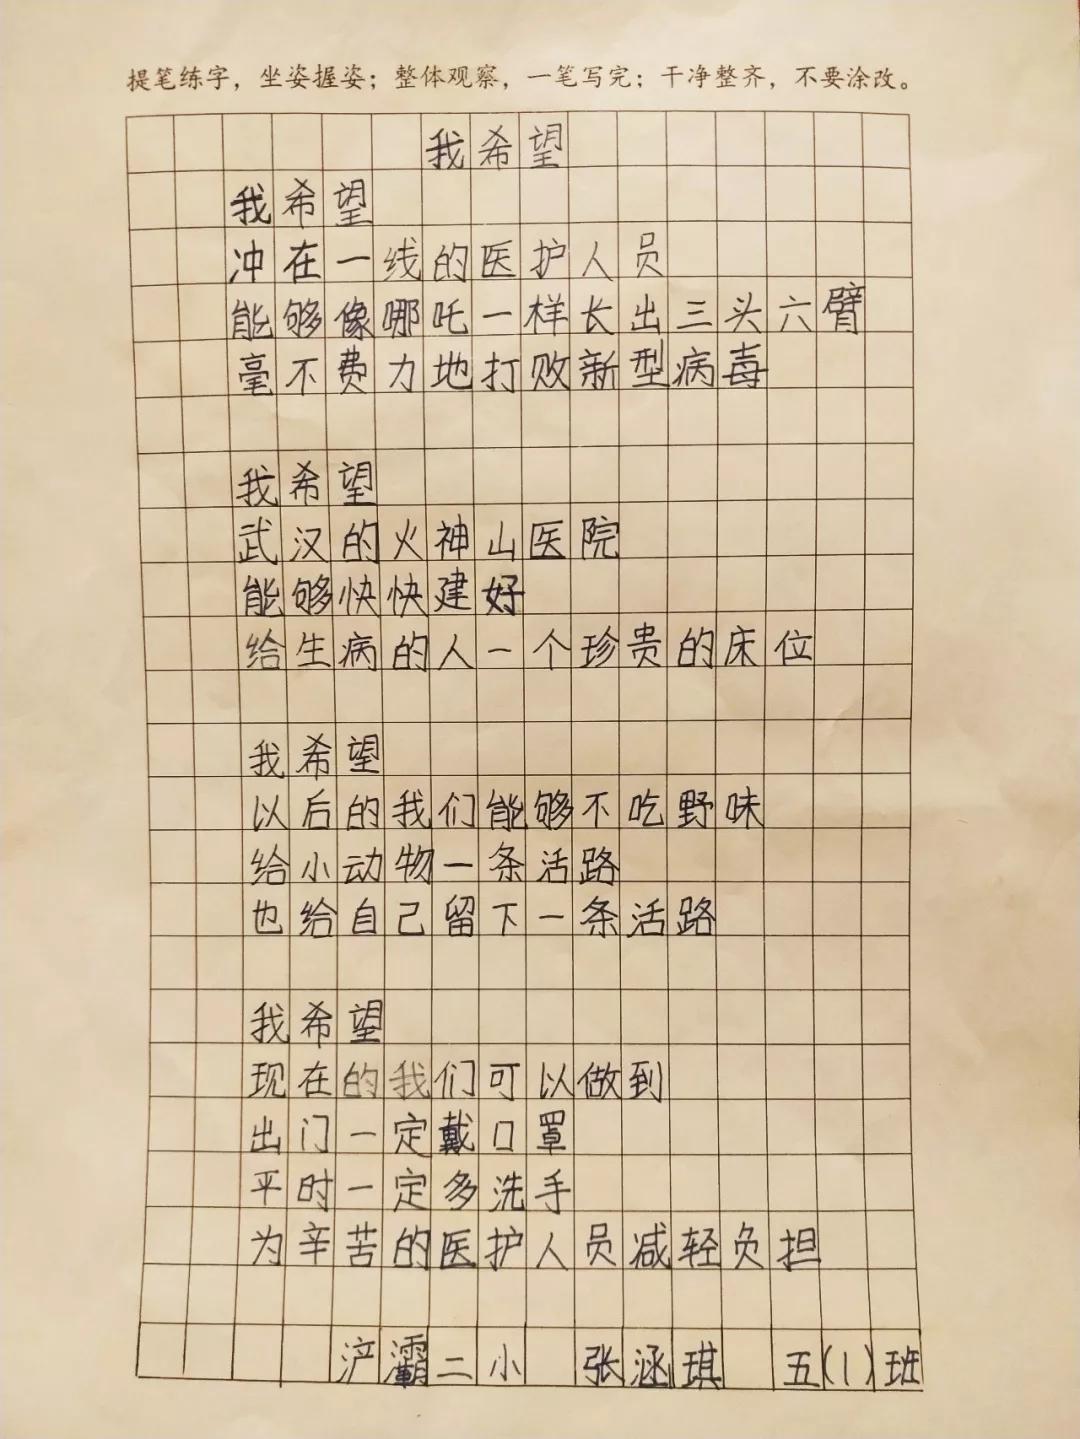 提笔练字，坐姿握姿；整体观察，一笔写完；干净整齐，不要涂改。
我希望
我希望
冲在一线的医护人员
能够像哪吒一样长出三头六臂
毫不费力地打败新型病毒
我希望
武汉的火神山医院
能够快快建好
给生病的人一个珍贵的床位
我希望
以后的我们能够不吃野味
给小动物一条活路
也给自己留下一条活路
我希望
现在的我们可以做到
出门一定戴口罩
平时一定多洗手
为辛苦的医护人员减轻负担
浐灞二小 张涵琪 五(1)班